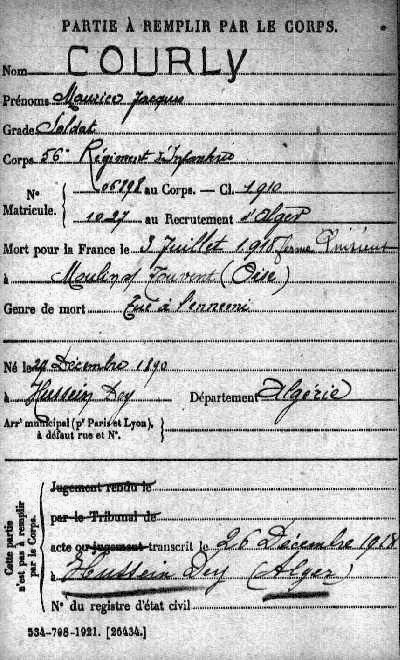 PARTIE À REMPLIR PAR LE CORPS.
Nom COURLY
Prénoms Maurice Jacques
Grade Soldat
Corps 56e Régiment d'Infanterie
N° Matricule. 06798 au Corps. — Cl. 1910
1027 au Recrutement d'Alger
Mort pour la France le 3 Juillet 1918 ferme
à Moulin s/ Touvent (Oise)
Genre de mort Tué à l'ennemi
Né le 29 Décembre 1890
à Hussein Dey Département Algérie
Arrt municipal (pr Paris et Lyon),
à défaut rue et N°.
Cette partie n'est pas à remplir par le Corps.
Jugement rendu le
par le Tribunal de
acte ou jugement transcrit le 26 Décembre 1918
à Hussein Dey (Alger)
N° du registre d'état civil
534-708-1921. [26434.]